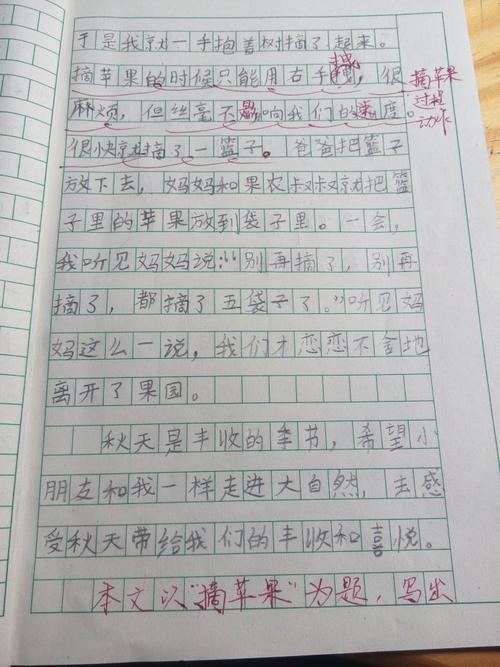 于是我就一手抱着树摘了起来。
摘苹果的时候只能用右手摘,很
麻烦,但丝毫不影响我们的速度。
摘苹果
过程
动作
很快就摘了一篮子。爸爸把篮子
放下去,妈妈和果农叔叔就把篮
子里的苹果放到袋子里。一会,
我听见妈妈说:“别再摘了,别再
摘了,都摘了五袋子了。”听见妈
妈这么一说,我们才恋恋不舍地
离开了果园。
秋天是丰收的季节,希望小
朋友和我一样走进大自然,去感
受秋天带给我们的丰收和喜悦。
本文以“摘苹果”为题,写出